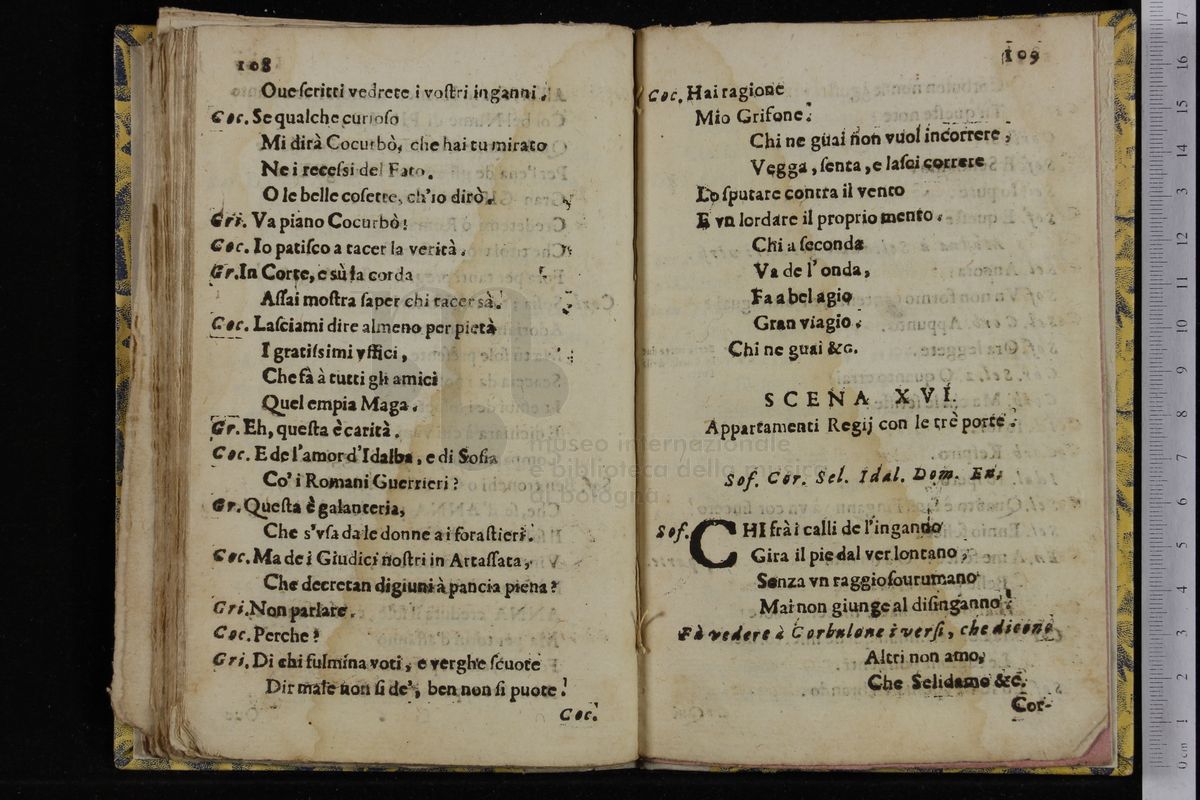 108
Oue scritti vedrete i vostri inganni.
Coc. Se qualche curioso
Mi dirà Cocurbò, che hai tu mirato
Ne i recessi del Fato.
O le belle cosette, ch'io dirò.
Gri. Va piano Cocurbò!
Coc. Io patisco a tacer la verità.
Gr. In Corte, e sù la corda
Assai mostra saper chi tacer sà.
Coc. Lasciami dire almeno per pietà
I gratissimi vffici,
Che fà à tutti gli amici
Quel empia Maga.
Gr. Eh, questa è carità.
Coc. E de l'amor d'Idalba, e di Sofia
Co' i Romani Guerrieri?
Gr. Questa è galanteria,
Che s'vsa da le donne a i forastieri.
Coc. Ma de i Giudici nostri in Artassata,
Che decretan digiuni à pancia piena?
Gri. Non parlare.
Coc. Perche?
Gri. Di chi fulmina voti, e verghe scuote
Dir male non si de', ben non si puote!
Coc.
109
Coc. Hai ragione
Mio Grifone:
Chi ne guai non vuol incorrere,
Vegga, senta, e lasci correre
Lo sputare contra il vento
E vn lordare il proprio mento.
Chi a seconda
Va de l'onda,
Fa a bel agio
Gran viagio.
Chi ne guai &c.
SCENA XVI.
Appartamenti Regij con le trè porte.
Sof. Cor. Sel. Idal. Dom. En.
Sof. CHI frà i calli de l'inganno
Gira il pie dal ver lontano,
Senza vn raggio sourumano
Mai non giunge al disinganno.
Fà vedere à Corbulone i versi, che dicono
Altri non amo,
Che Selidamo &c.
Cor-
museo internazionale
e biblioteca della musica
di bologna